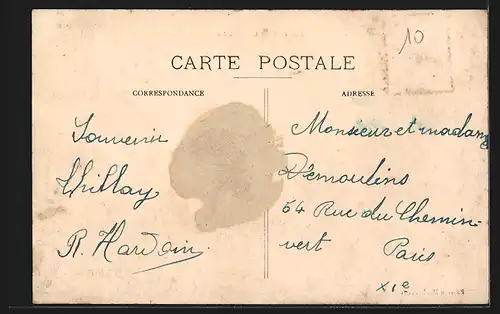 10
CARTE POSTALE
CORRESPONDANCE
ADRESSE
Souvenir
Thillay
R. Hardoin
Monsieur et madame
Démoulins
54 Rue du Chemin-
vert Paris
XIe